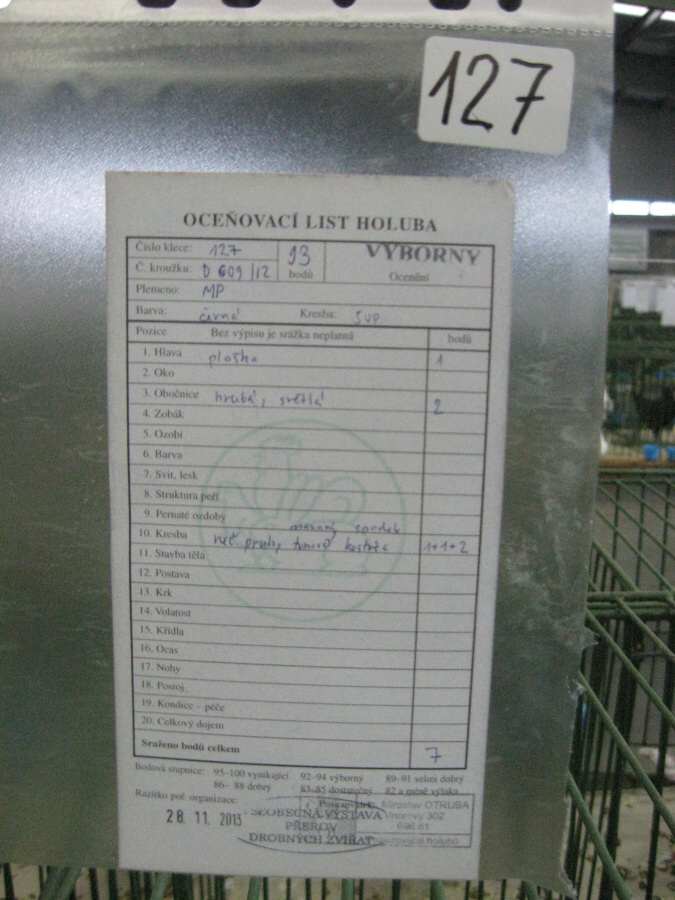 127
OCEŇOVACÍ LIST HOLUBA
Číslo klece: 127 93 VÝBORNÝ
Č. kroužku: D 609/12 bodů Ocenění
Plemeno: MP
Barva: černá Kresba: sup
Pozice Bez výpisu je srážka neplatná bodů
1. Hlava ploška 1
2. Oko
3. Obočnice hrubá, světlá 2
4. Zobák
5. Ozobí
6. Barva
7. Svit, lesk
8. Struktura peří
9. Pernaté ozdoby
10. Kresba 1+1+2
11. Stavba těla
12. Postava
13. Krk
14. Volatost
15. Křídla
16. Ocas
17. Nohy
18. Postoj
19. Kondice - péče
20. Celkový dojem
Sraženo bodů celkem 7
Bodová stupnice: 95-100 vynikající 92-94 výborný 89-91 velmi dobrý
86- 88 dobrý 83-85 dostatečný 82 a méně výluka
Razítko poř. organizace: Posuzovatel: Miroslav OTRUBA
28. 11. 2013 VŠEOBECNÁ VÝSTAVA 302
PŘEROV 696 61
DROBNÝCH ZVÍŘAT holubů